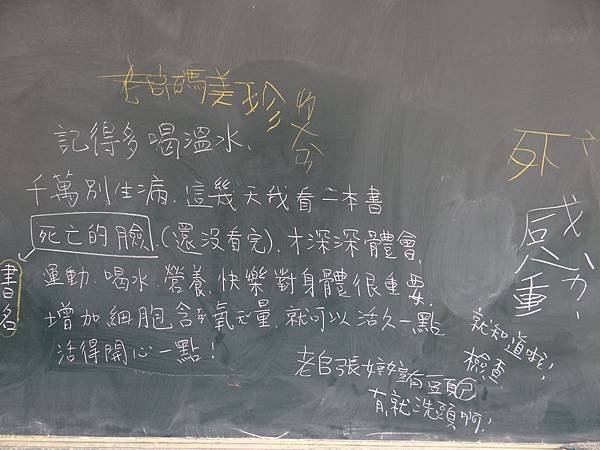 美珍
記得多喝溫水、
千萬別生病.這幾天我看二本書
死亡的臉.(還沒看完).才深深體會.
書名
運動.喝水.營養.快樂對身體很重要.
增加細胞含氧量.就可以活久一點
活得開心一點!
死
感
重
就知道啦!
檢查
老師張婷婷有豆頁
有就洗頭啊!